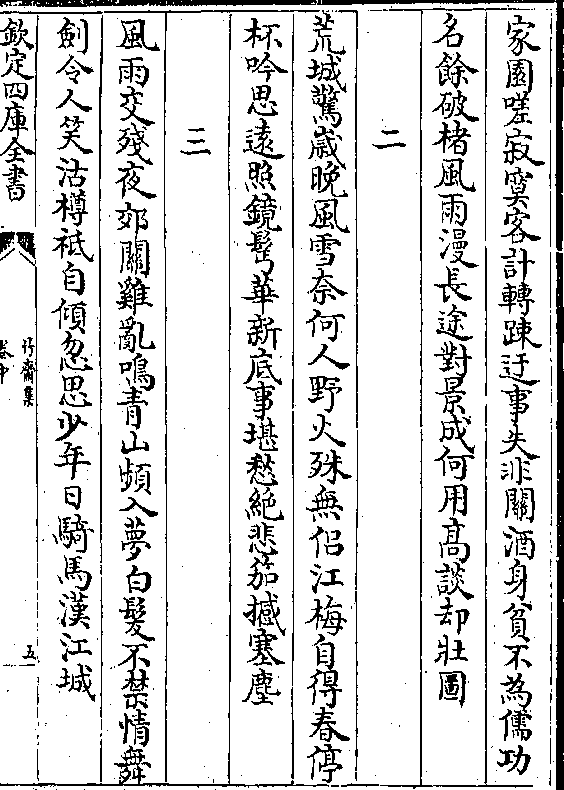 家園嗟寂寞客計轉踈迂事失非關酒身貧不為儒功
名餘破楮風雨漫長途對景成何用髙談却壯圖
二
荒城驚嵗晩風雪奈何人野火殊無侣江梅自得春停
杯吟思逺照鏡髩華新底事堪愁絶悲笳撼塞塵
三
風雨交殘夜郊關雞亂鳴青山頻入夢白髮不禁情舞
劍令人笑沽樽祗自傾忽思少年日騎馬漢江城
欽定四庫全書
竹齋集
卷中
五